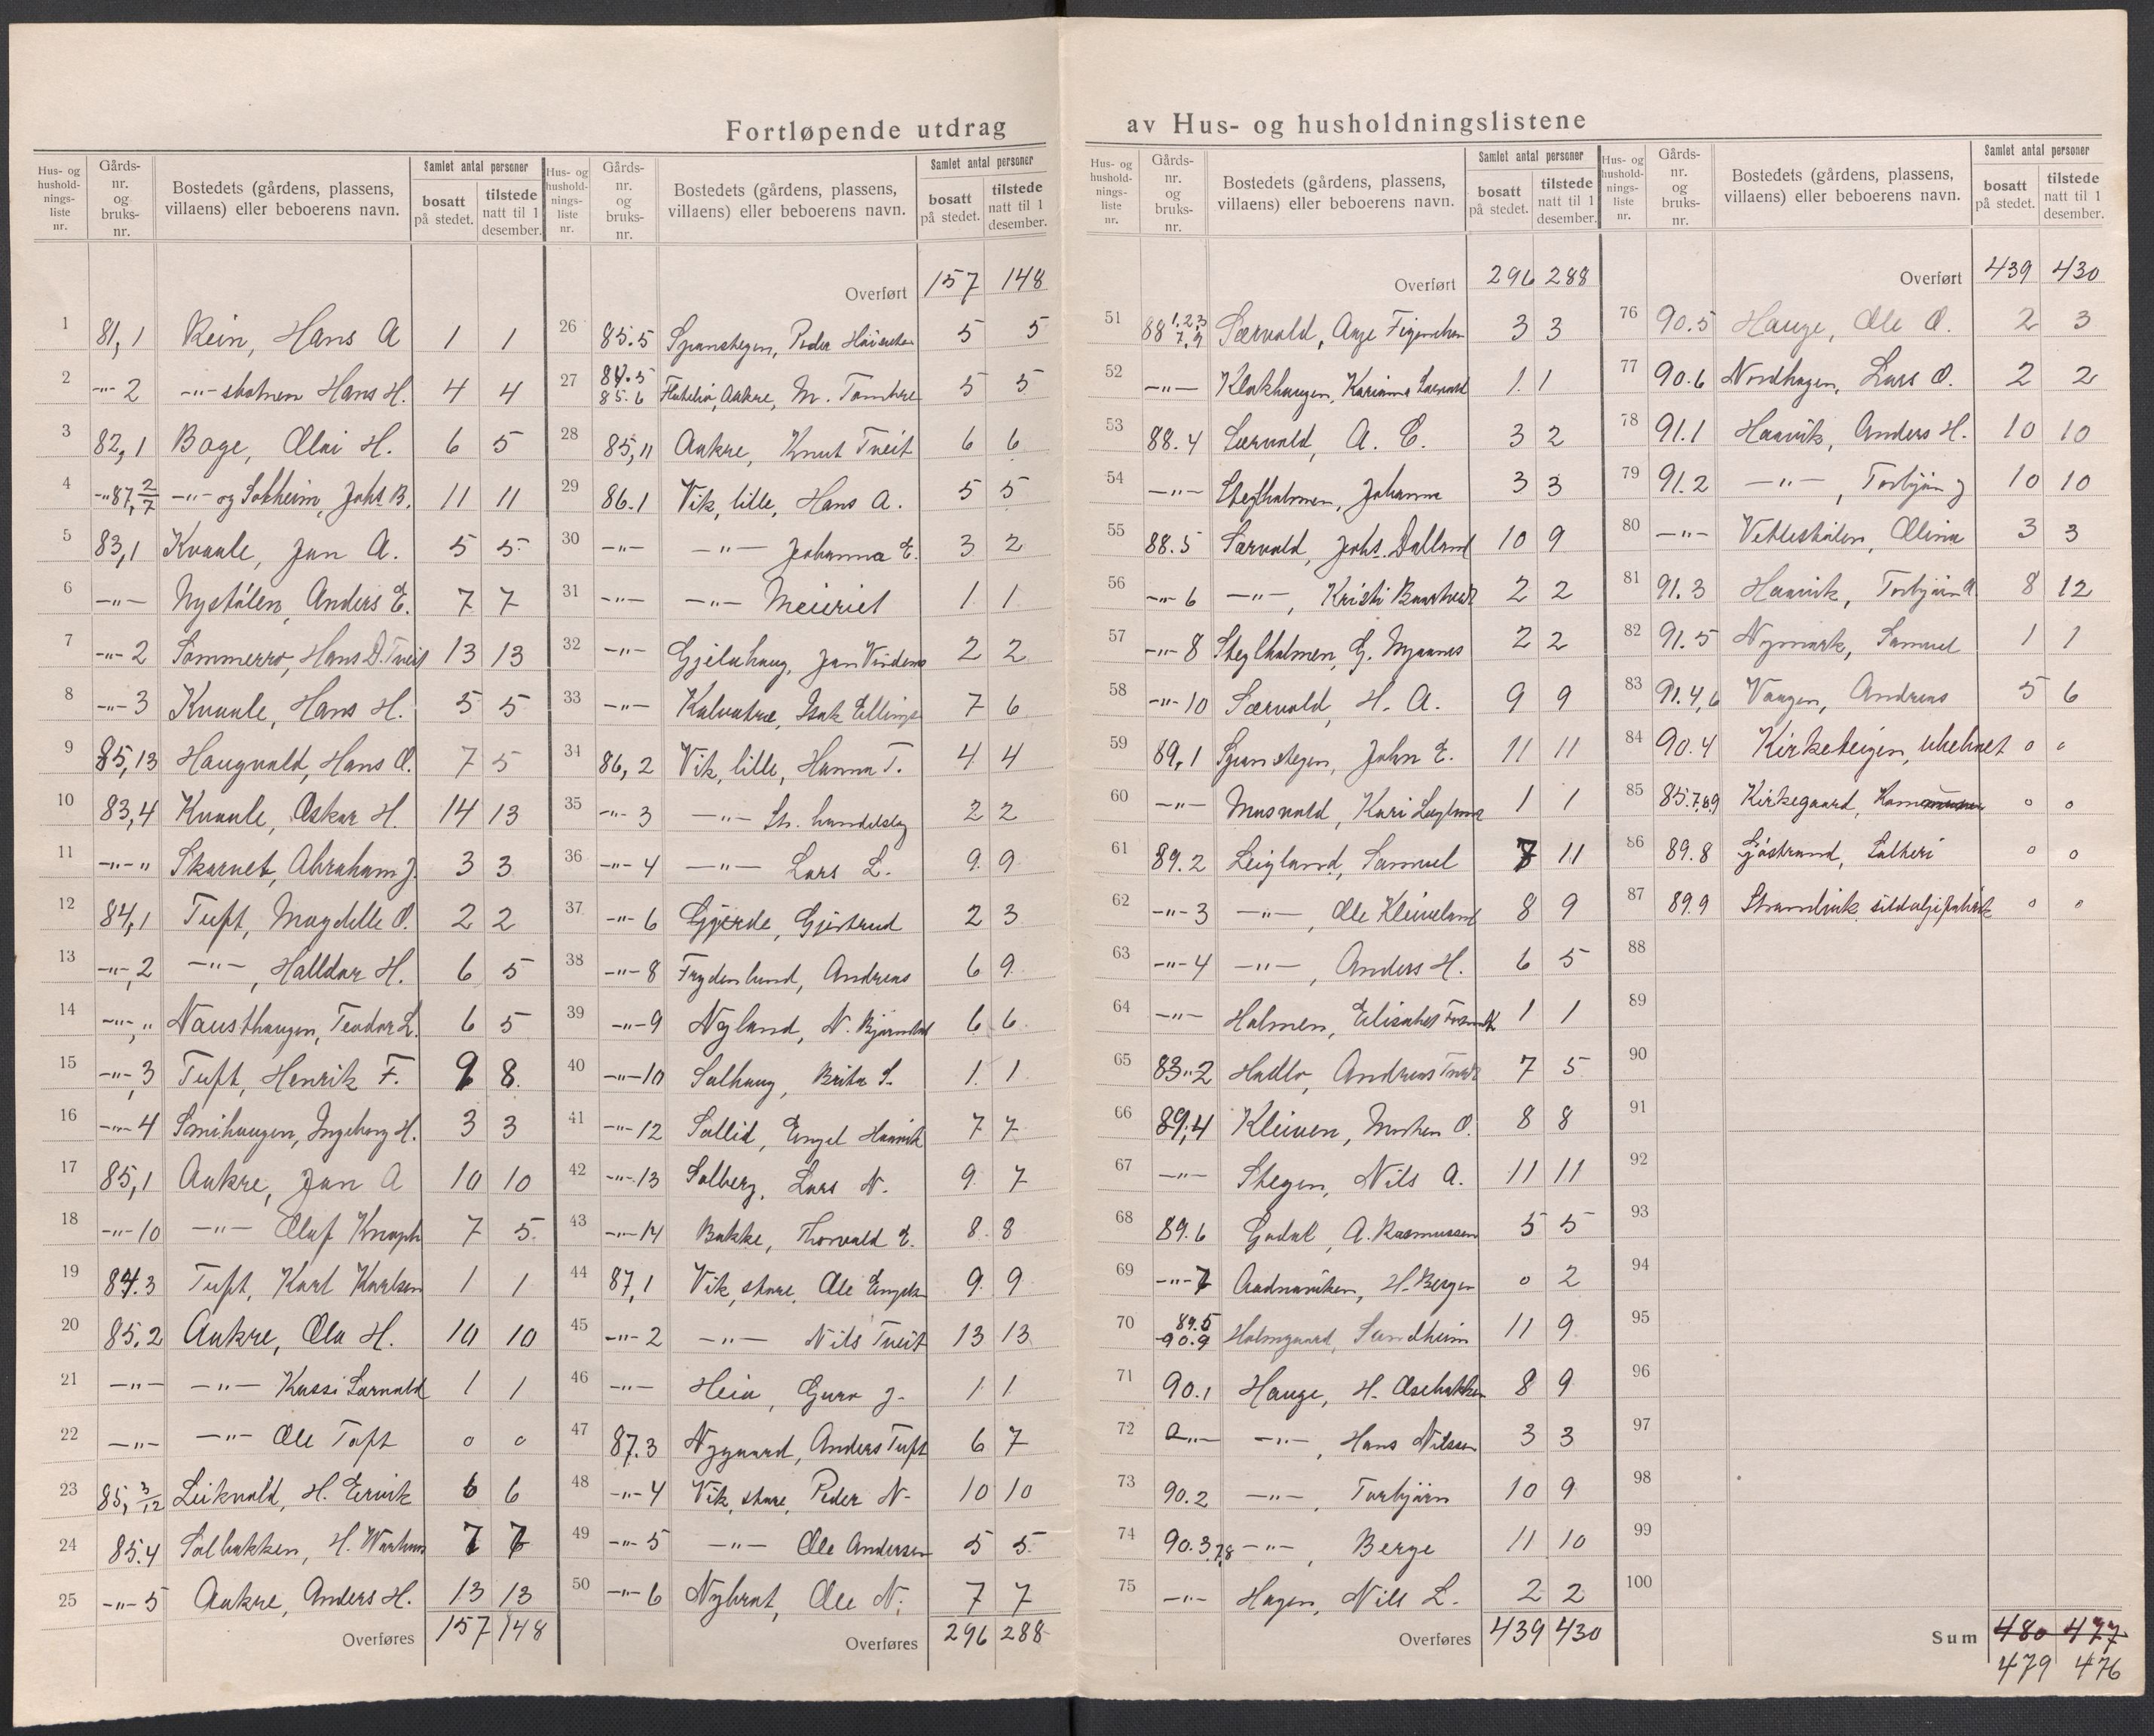 Fortløpende utdrag av Hus- og husholdningslistene
Hus- og husholdnings-liste nr. | Gårds-nr. og bruks-nr. | Bostedets (gårdens, plassens, villaens) eller beboerens navn. | Samlet antal personer | bosatt på stedet. | tilstede natt til 1 desember.
1 81,1 Rein, Hans A 1 1
2 -"- 2 -"- Hans H. 4 4
3 82,1 Bage, Olai H. 6 5
4 -"-87,2/7 -"- og Solheim, Johs B. 11 11
5 83,1 Kvaale, Jan A. 5 5
6 -"- Nystølen, Anders E. 7 7
7 -"- 2 Sommerro, Hans D. Tveit 13 13
8 -"- 3 Kvaale, Hans H. 5 5
9 85,13 Haugvald, Hans O. 7 5
10 83,4 Kvaale, Oskar H. 14 13
11 -"-" Skarvet, Abraham J. 3 3
12 84,1 Tuft, Magdelle O. 2 2
13 -"-,2 -"-, Halldor H. 6 5
14 -"-," Nausthaugen, Teodor L. 6 5
15 -"-,3 Tuft, Henrik F. 9 8
16 -"- 4 Smihaugen, Ingeborg H. 3 3
17 85,1 Aakre, Jan A 10 10
18 -"- 10 -"- Oluf Knaph 7 5
19 84.3 Tuft, Karl Karlsen 1 1
20 85.2 Aakre, Ola H. 10 10
21 -"- -"- Kassi Særvold 1 1
22 -"- -"- Ole Toft 0 0
23 85,3/12 Leikvold, H. Ervik 6 6
24 85.4 Solbakken, H. 7 7
25 -"- 5 Aakre, Anders H. 13 13
Overføres 157 148
Overført 157 148
26 85.5 Spanstegen, Peder 5 5
27 84.5 85.6 Aakre, M. 5 5
28 85,11 Aakre, Knut Tveit 6 6
29 86.1 Vik, lille, Hans A. 5 5
30 -"- -"- Johanna E. 3 2
31 -"- -"- Meieriet 1 1
32 -"- Gjelahaug, Jan 2 2
33 -"- Kalvatræ, Isak Ellings 7 6
34 86,2 Vik, lille, Hanna T. 4 4
35 -"- 3 -"- St. handelslag 2 2
36 -"- 4 -"- Lars L. 9 9
37 -"- 6 Gjerde, Gjertrud 2 3
38 -"- 8 Frydenlund, Andreas 6 9
39 -"- 9 Nyland, N. 6 6
40 -"- 10 Solhaug, Brita S. 1 1
41 -"- 12 Sollid, Engel Haavik 7 7
42 -"- 13 Solberg, Lars N. 9 7
43 -"- 14 Bakke, Thorvald E. 8 8
44 87,1 Vik, store, Ole Engels 9 9
45 -"- 2 -"- Nils Tveit 13 13
46 -"- Heia, Guro J. 1 1
47 87.3 Nygaard, Anders Tuft 6 7
48 -"- 4 Vik, store, Peder N. 10 10
49 -"- 5 -"- Ole Andersen 5 5
50 -"- 6 Nybrat, Ole N. 7 7
Overføres 296 288
Overført 296 288
51 88 1,2,3 7,9 Særvold, Aage Figenschou 3 3
52 -"- Klokhaugen, Karianna Særvold 1 1
53 88.4 Særvold, A. E. 3 2
54 -"- Steglholmen, Johanna 3 3
55 88.5 Særvold, Johs. Dalland 10 9
56 -"- 6 -"-, Kristi 2 2
57 -"- 8 Steglholmen, G. 2 2
58 -"- 10 Særvold, H. A. 9 9
59 89,1 Spanstegen, John E. 11 11
60 -"- Musvold, Kari Leigland 1 1
61 89.2 Leigland, Samuel 7 11
62 -"- 3 -"-, Ole Kleiveland 8 9
63 -"- 4 -"-, Anders H. 6 5
64 -"- Holmen, Elisabet 1 1
65 83"2 Hatlo, Andreas Tveit 7 5
66 89,4 Kleiven, Morten O. 8 8
67 -"- Stegen, Nils A. 11 11
68 89.6 Godal, A. Rasmussen 5 5
69 -"- 7 Aadnaviken, H. Bergen 0 2
70 89.5 90.9 Holmgaard, Sundheim 11 9
71 90.1 Hauge, H. Osebakken 8 9
72 -"- -"-, Hans Nilssen 3 3
73 90.2 -"-, Torbjørn 10 9
74 90.3,7,8 -"-, Berge 11 10
75 -"- Hagen, Nils L. 2 2
Overføres 439 430
Overført 439 430
76 90.5 Hauge, Ole O. 2 3
77 90.6 Nordhagen, Lars O. 2 2
78 91.1 Haavik, Anders H. 10 10
79 91.2 -"-, Torbjørn J 10 10
80 -"- Vetlestølen, Olina 3 3
81 91.3 Haavik, Torbjørn A 8 12
82 91.5 Nymark, Samuel 1 1
83 91.4,6 Vaagen, Andreas 5 6
84 90.4 Kirketeigen, ubeboet 0 0
85 85.7,8,9 Kirkegaard, 0 0
86 89.8 Gjøstrand, Salteri 0 0
87 89.9 Strandvik sildoljefabrik 0 0
88
89
90
91
92
93
94
95
96
97
98
99
100
Sum 480 477
479 476